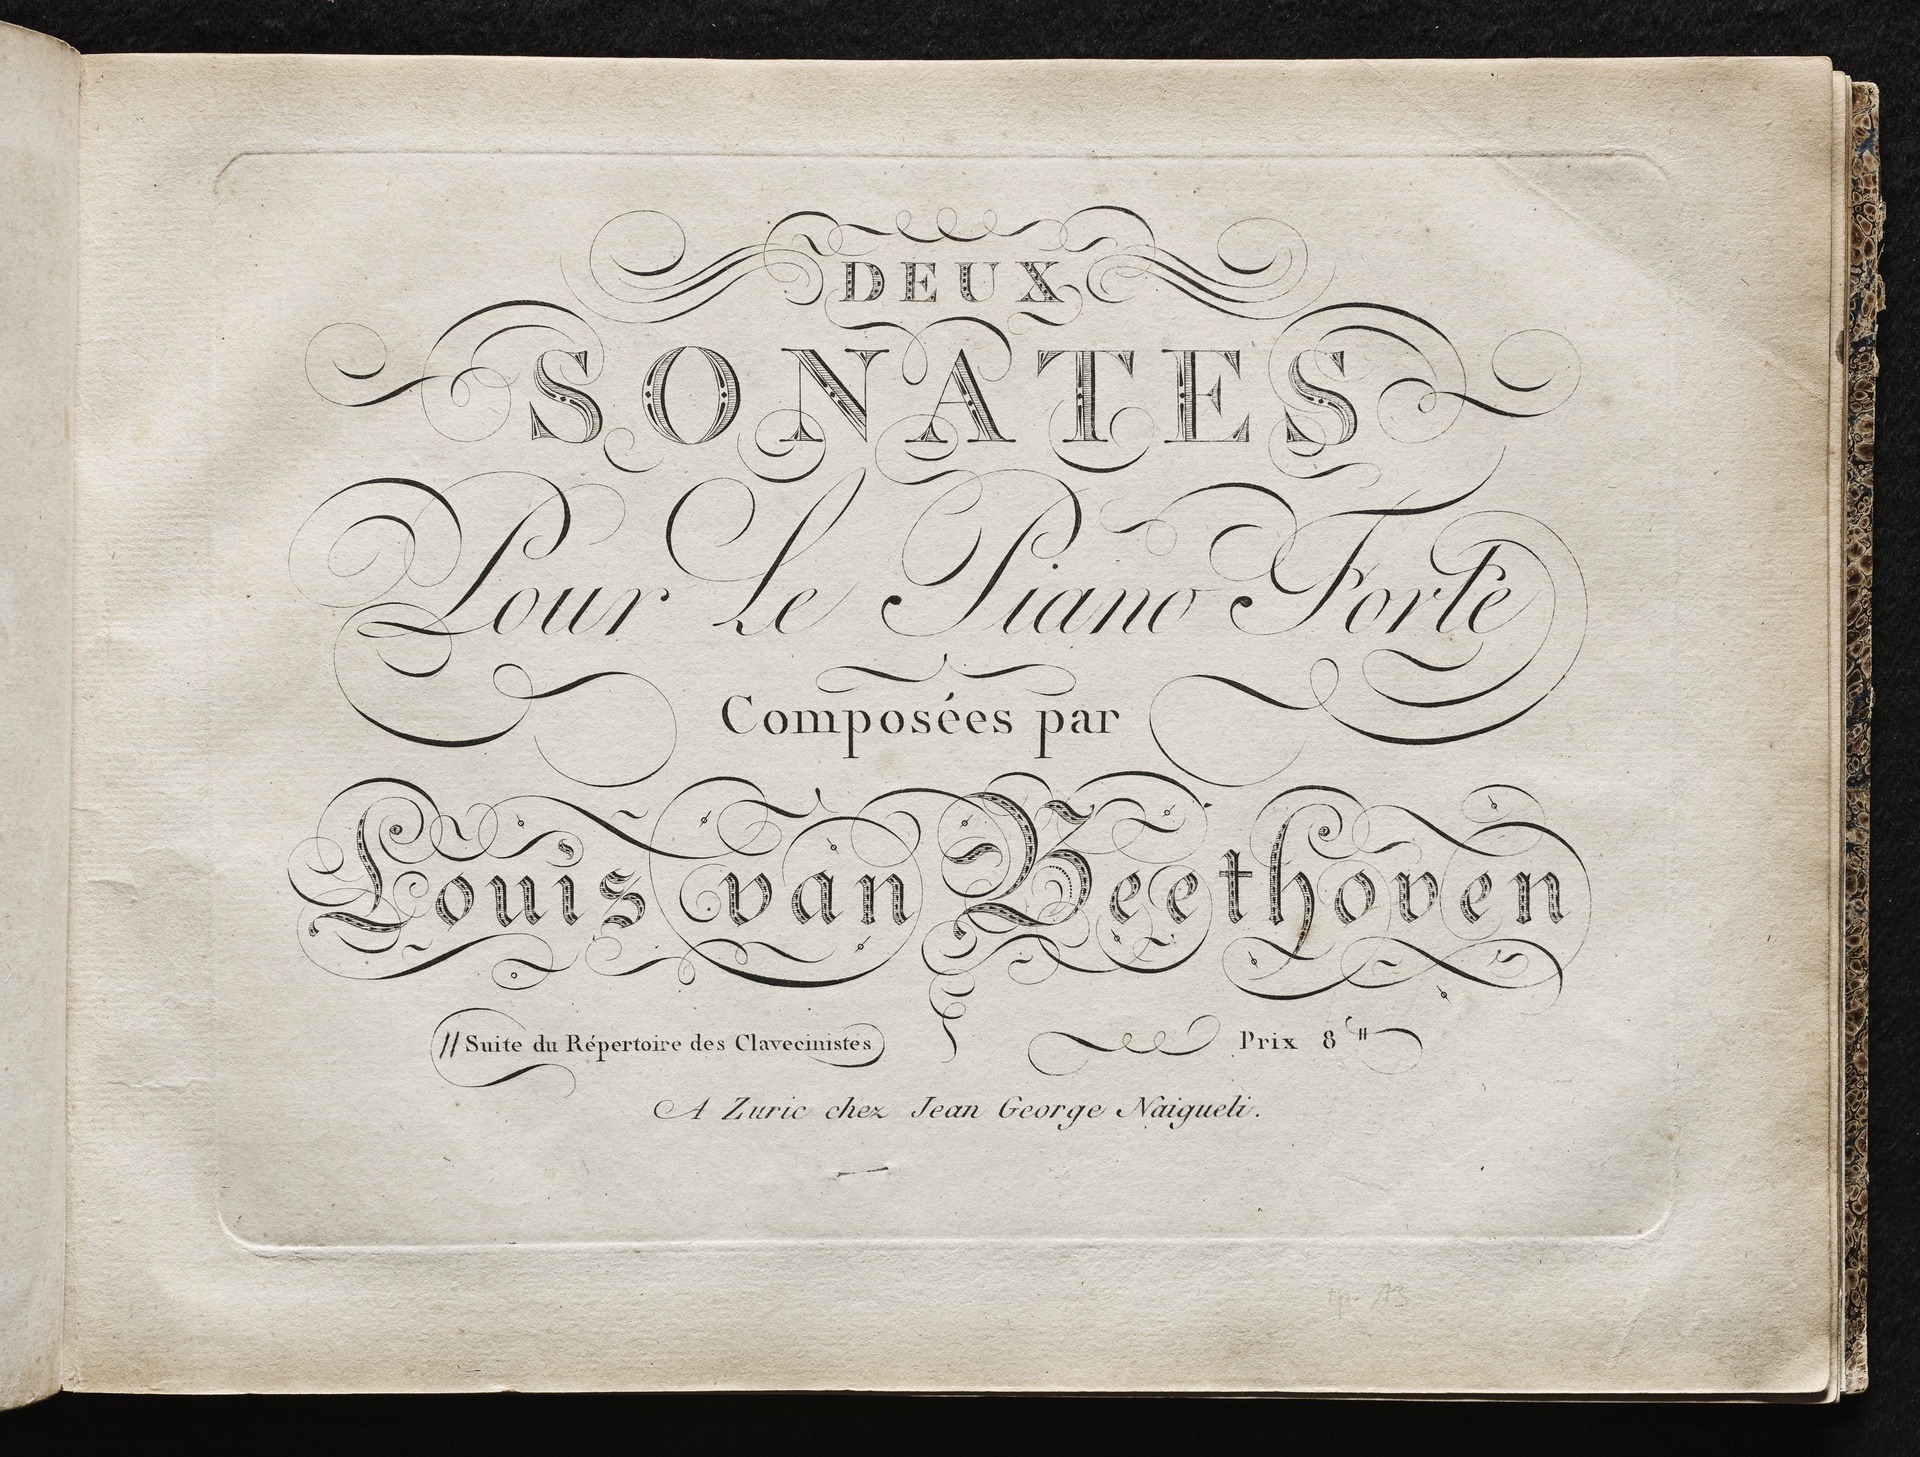 DEUX
SONATES
Pour Le Piano Forte
Composées par
Louis van Beethoven
11 Suite du Répertoire des Clavecinistes
Prix 8 ₶
A Zuric chez Jean George Naigueli.